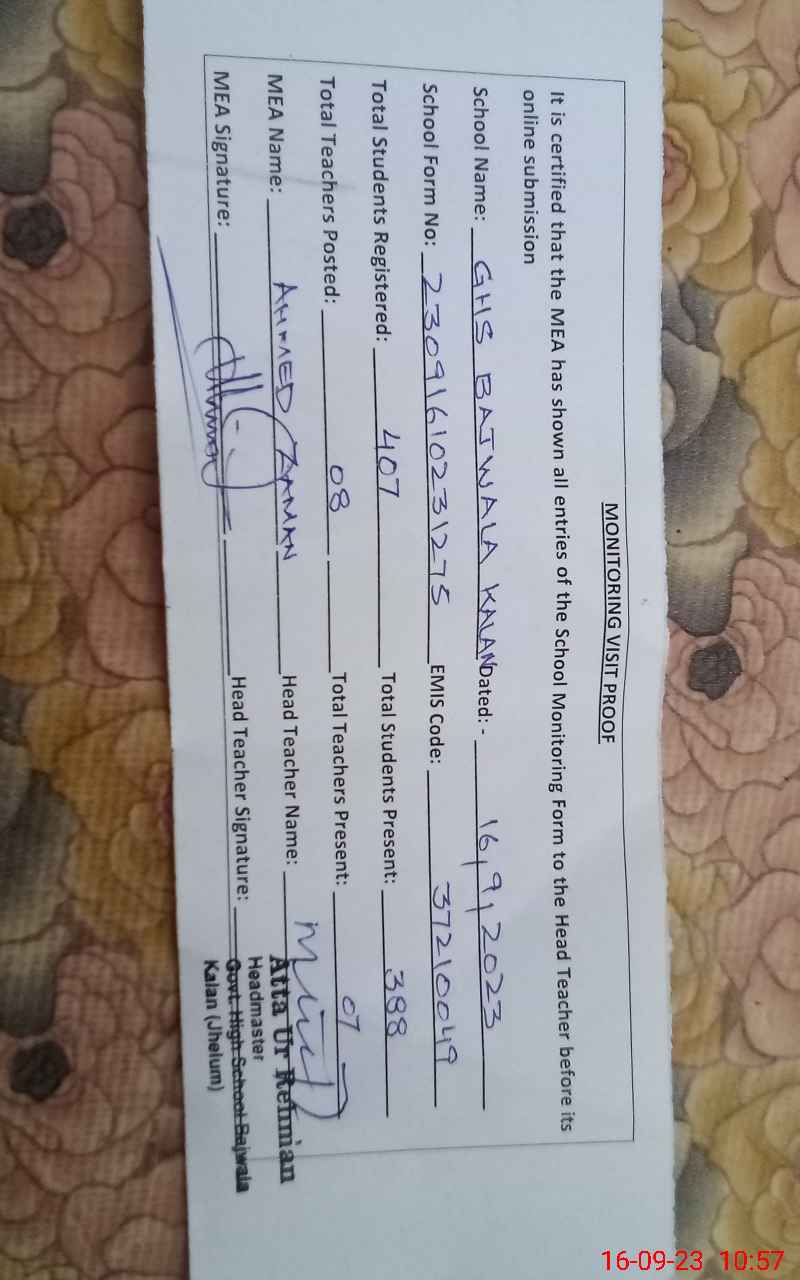 MONITORING VISIT PROOF
It is certified that the MEA has shown all entries of the School Monitoring Form to the Head Teacher before its
online submission
School Name: GHS BAJWALA KALAN Dated: - 16,9,2023
School Form No: 23091610231275 EMIS Code: 37210049
Total Students Registered: 407 Total Students Present: 388
Total Teachers Posted: 08 Total Teachers Present: 07
MEA Name: AHMED ZAMAN Head Teacher Name:
MEA Signature: Head Teacher Signature:
Atta Ur Rehman
Headmaster
Govt. High School Bajwala
Kalan (Jhelum)
16-09-23 10:57